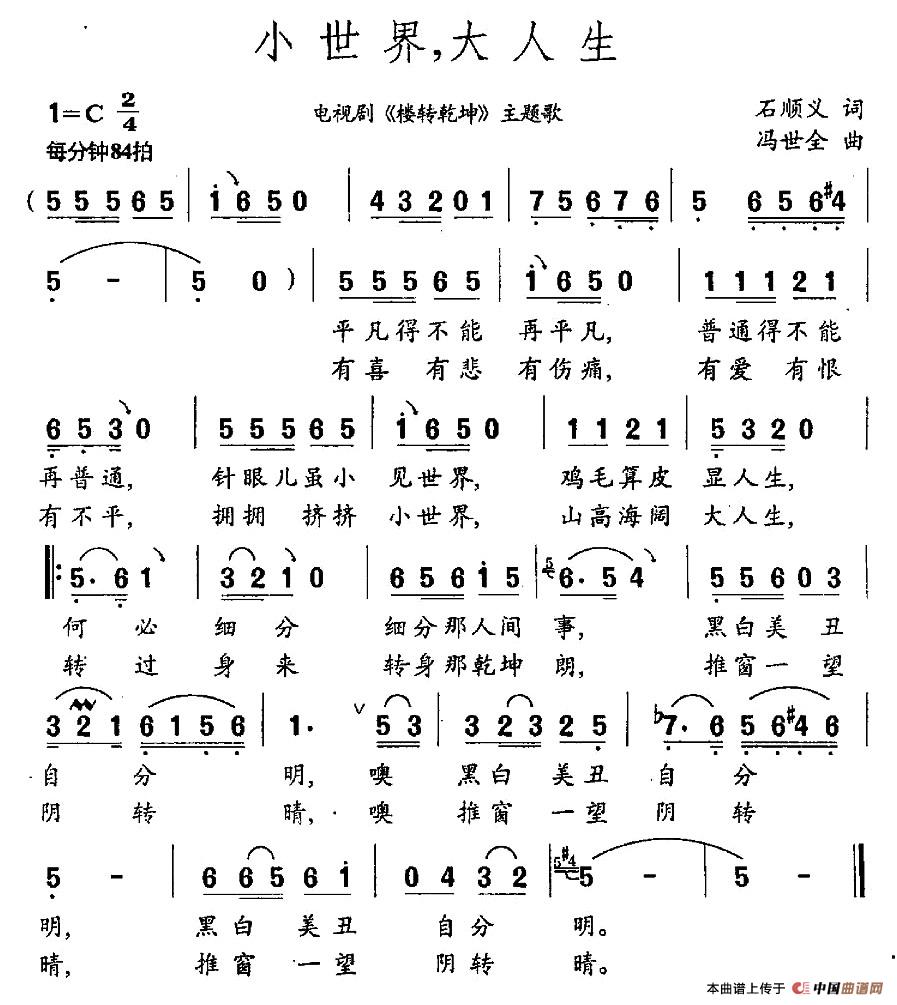 小世界,大人生
1=C 2/4
电视剧《楼转乾坤》主题歌
石顺义 词
每分钟84拍
冯世全 曲
( 5 5 5 6 5 | 1 6 5 0 | 4 3 2 0 1 | 7 5 6 7 6 | 5 6 5 6 #4 |
5 - | 5 0 ) | 5 5 5 6 5 | 1 6 5 0 | 1 1 1 2 1 |
平凡得不能 再平凡, 普通得不能
有喜 有悲 有伤痛, 有爱 有恨
6 5 3 0 | 5 5 5 6 5 | 1 6 5 0 | 1 1 2 1 | 5 3 2 0 |
再普通, 针眼儿虽小 见世界, 鸡毛算皮 显人生,
有不平, 拥拥 挤挤 小世界, 山高海阔 大人生,
‖: 5. 6 1 | 3 2 1 0 | 6 5 6 1 5 | 5 6. 5 4 | 5 5 6 0 3 |
何必 细分 细分那人间 事, 黑白美丑
转过 身来 转身那乾坤 朗, 推窗一望
3 2 1 6 1 5 6 | 1. ∨ 5 3 | 3 2 3 2 5 | ♭7. 6 5 6 #4 6 |
自 分 明, 噢 黑白 美丑 自 分
阴 转 晴, 噢 推窗 一望 阴 转
5 - | 6 6 5 6 1 | 0 4 3 2 | 5 #4 5 - | 5 - ‖
明, 黑白 美丑 自分 明。
晴, 推窗 一望 阴转 晴。
本曲谱上传于 中国曲谱网